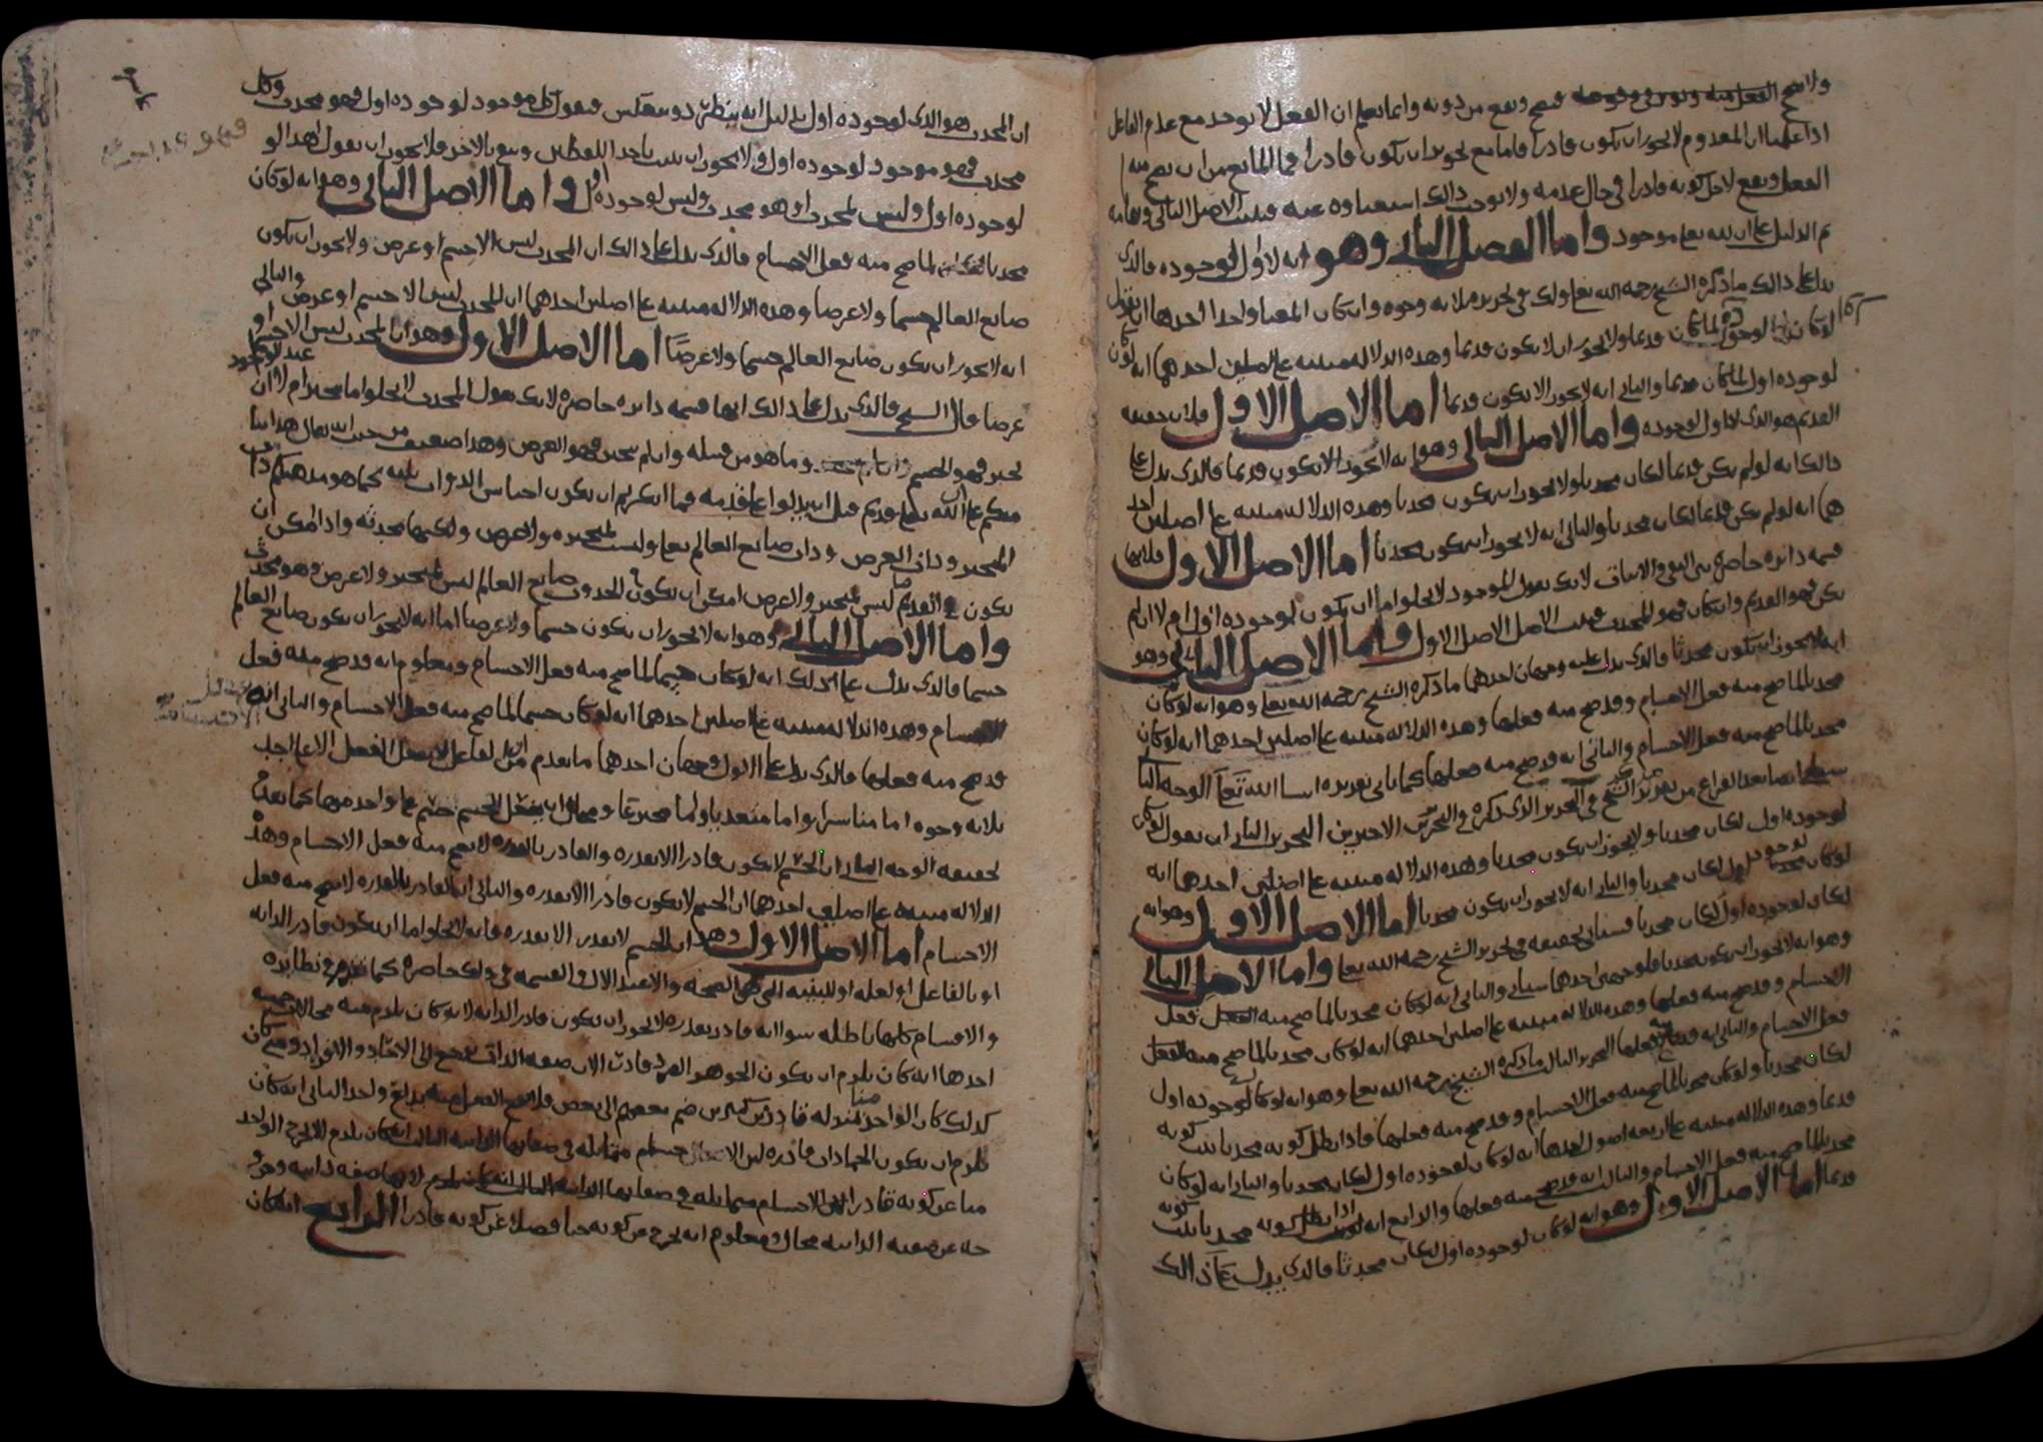 ولا يصح الفعل منه فيصح ويقع من دونه وانما نعلم ان الفعل لا يوجد مع عدم الفاعل
اذا علمنا ان المعدوم لا يجوز ان يكون قادرا فاما مع تجويز ان يكون قادرا فما المانع من ان يصح منه
الفعل ويقع لاجل كونه قادرا في حال عدمه ولا يوجب ذالك استغناوه عنه فثبت الاصل الثاني وبتمامه
تم الدليل على ان الله تعلى موجود واما الفصل الثاني وهو انه لا اول لوجوده فالذي
يدل على ذالك ما ذكره الشيخ رحمه الله تعلى ولك في تحريره ثلاثة وجوه وان كان المعنا واحدا احدها ان تقول
لو كان لوجوده لما كان قديما ولا يجوز ان لا يكون قديما وهذه الدلالة مبنية على اصلين احدهما انه لو كان
لوجوده اول لما كان قديما والثاني انه لا يجوز الا يكون قديما اما الاصل الاول فلان حقيقة
القديم هو الذي لا اول لوجوده واما الاصل الثاني وهو انه لا يجوز الا يكون قديما فالذي يدل على
ذالك انه لو لم يكن قديما لكان محدثا ولا يجوز ان يكون محدثا وهذه الدلالة مبنية على اصلين احد
هما انه لو لم يكن قديما لكان محدثا والثاني انه لا يجوز ان يكون محدثا اما الاصل الاول فلانها
قسمة دائرة حاصرة بين النفي والاثبات لانك تقول الموجود لا يخلوا اما ان يكون لوجوده اول ام لا ان لم
يكن فهو القديم وان كان فهو المحدث فثبت الاصل الاول واما الاصل الثاني وهو
انه لا يجوز ان يكون محدثا فالذي يدل عليه وجهان احدهما ما ذكره الشيخ رحمه الله تعلى وهو انه لو كان
محدثا لما صح منه فعل الاجسام وقد صح منه فعلها وهذه الدلالة مبنية على اصلين احدهما انه لو كان
محدثا لما صح منه فعل الاجسام والثاني انه قد صح منه فعلها كما ياتي تقريره انشا الله تعا الوجه الثا
بعد الفراغ من تقرير الشيخ في التحرير الذي ذكره والتحريرين الاخيرين التحرير الثاني ان تقول لو كان
لوجوده اول لكان محدثا ولا يجوز ان يكون محدثا وهذه الدلالة مبنية على اصلين احدهما انه
لو كان لوجوده اول لكان محدثا والثاني انه لا يجوز ان يكون محدثا اما الاصل الاول وهو انه
لو كان لوجوده اول لكان محدثا فسياتي تحقيقه في تحرير الشيخ رحمه الله تعا واما الاصل الثاني
وهو انه لا يجوز ان يكون محدثا فلوجهين احدهما سياتي والثاني انه لو كان محدثا لما صح منه فعل
الاجسام وقد صح منه فعلها وهذه الدلالة مبنية على اصلين احدهما انه لو كان محدثا لما صح منه
فعل الاجسام والثاني انه قد صح منه فعلها التحرير الثالث ما ذكره الشيخ رحمه الله تعلى وهو انه لو كان لوجوده اول
لكان محدثا ولو كان محدثا لما صح منه فعل الاجسام وقد صح منه فعلها فاذا بطل كونه محدثا ثبت كونه
قديما وهذه الدلالة مبنية على اربعة اصول احدها انه لو كان لوجوده اول لكان محدثا والثاني انه لو كان
محدثا لما صح منه فعل الاجسام والثالث انه قد صح منه فعلها والرابع انه اذا بطل كونه محدثا ثبت كونه
قديما اما الاصل الاول وهو انه لو كان لوجوده اول لكان محدثا فالذي يدل على ذالك
ان المحدث هو الذي لوجوده اول بدليل انه يطرد وينعكس فتقول كل موجود لوجوده اول فهو محدث وكل
محدث فهو موجود لوجوده اول ولا يجوز ان يثبت باحد اللفظين وينفي بالاخر فلا يجوز ان تقول هذا لو
لوجوده اول وليس بمحدث او هو محدث وليس لوجوده اول واما الاصل الثاني وهو انه لو كان
محدثا لما صح منه فعل الاجسام فالذي يدل على ذالك ان المحدث ليس الا جسم او عرض ولا يجوز ان يكون
صانع العالم جسما ولا عرضا وهذه الدلالة مبنية على اصلين احدهما ان المحدث ليس الا جسم او عرض والثاني
انه لا يجوز ان يكون صانع العالم جسما ولا عرضا اما الاصل الاول وهو ان المحدث ليس الا جسم او
عرضا قال الشيخ فالذي يدل على ذالك انها قسمة دائرة حاصرة لانك تقول المحدث لا يخلوا اما متحيز ام لا ان
تحيز فهو الجسم وما هو من قبله وان لم يتحيز فهو العرض وهذا ضعيف من حيث ان يقال هذا بنا
منكم على ان الله تعلى قديم قبل ان يدلوا على قدمه فما انكرتم ان يكون اجناس الذوات ثلثه كما هو مذهبكم ذات
المتحيز وذات العرض وذات صانع العالم تعا وليست بمتحيزه ولا عرض ولكنها محدثه واذا امكن ان
يكون القديم ليس بمتحيز ولا عرض امكن ان يكون المحدث صانع العالم ليس بمتحيز ولا عرض وهو محدث
واما الاصل الثاني وهو انه لا يجوز ان يكون جسما ولا عرضا اما انه لا يجوز ان يكون صانع العالم
جسما فالذي يدل على ذلك انه لو كان جسما لما صح منه فعل الاجسام ومعلوم انه قد صح منه فعل
الاجسام وهذه الدلالة مبنية على اصلين احدهما انه لو كان جسما لما صح منه فعل الاجسام والثاني انه
قد صح منه فعلها فالذي يدل على الاول وجهان احدهما ما تقدم من ان الفاعل لا يفعل الفعل الا على احد
ثلاثة وجوه اما مباشرا واما متعديا واما مخترعا ومحال ان يفعل الجسم جسم على واحد منها كما تقدم
تحقيقه الوجه الثاني ان الجسم لا يكون قادرا الا بقدره والقادر بالقدره لا يصح منه فعل الاجسام وهذه
الدلالة مبنية على اصلين احدهما ان الجسم لا يكون قادرا الا بقدره والثاني ان القادر بالقدره لا يصح منه فعل
الاجسام اما الاصل الاول وهو ان الجسم لا يقدر الا بقدره فانه لا يخلوا اما ان يكون قادرا لذاته
او بالفاعل او لعله او للبنية التي هي الصحة والاعتدال والقسمة في ذلك حاصرة كما تقدم في نظائره
والاقسام كلها باطله سوا انه قادر بقدره لا يجوز ان يكون قادرا لذاته لانه كان يلزم منه محالات خمسه
احدها انه كان يلزم ان يكون الجوهر الفرد قادرا لان صفة الذات ترجع الى الاحاد والافراد ومتى كان
كذلك كان الواحد منا بمنزلة قادرين كثيرين ضم بعضهم الى بعض فلا يصح الفعل منه بداع واحد الثاني انه كان
يلزم ان يكون الجمادات قادره لان الاجسام متماثله في صفاتها الذاتيه الثالث انه كان يلزم الا يخرج الواحد
منا عن كونه قادرا لان الاجسام متماثله في صفاتها الذاتيه لانها صفه ذاتيه وخرو
جه عن صفته الذاتيه محال ومعلوم انه يخرج عن كونه حيا فضلا عن كونه قادرا الرابع انه كان